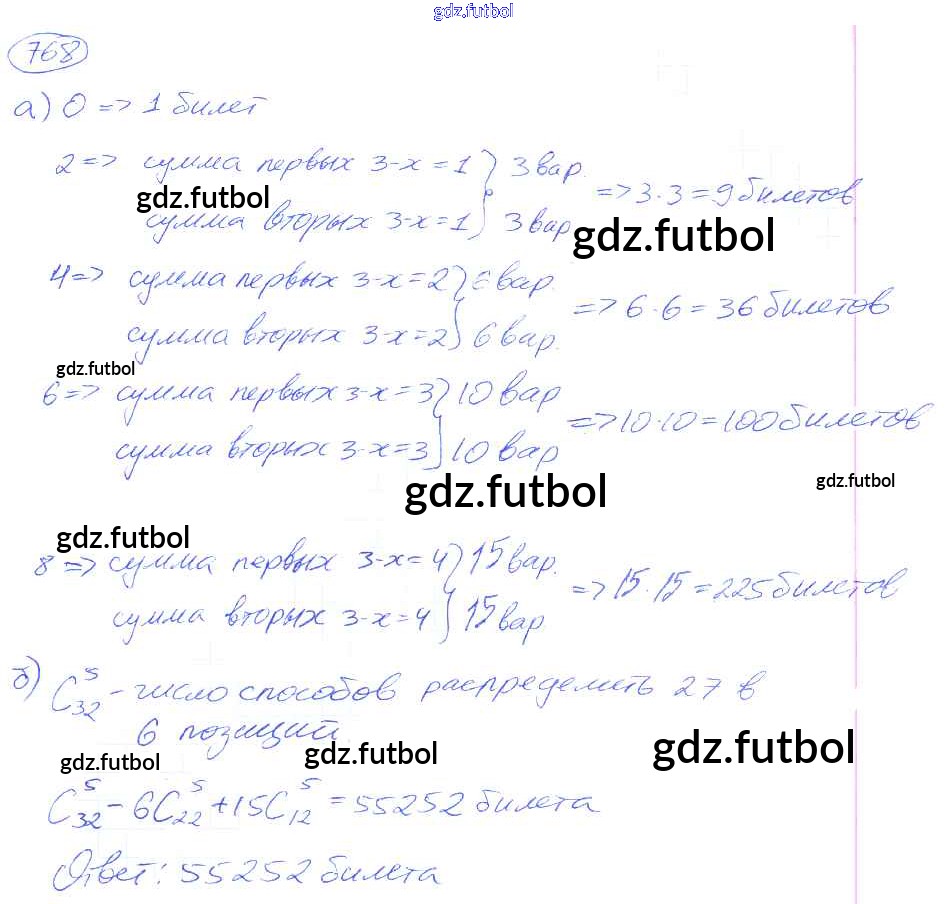 gdz.futbol
768
а) 0 => 1 билет
2 => сумма первых 3-х = 1 } 3 вар.
gdz.futbol
сумма вторых 3-х = 1 } 3 вар
=> 3·3 = 9 билетов
gdz.futbol
4 => сумма первых 3-х = 2 } 6 вар.
сумма вторых 3-х = 2 } 6 вар.
=> 6·6 = 36 билетов
gdz.futbol
6 => сумма первых 3-х = 3 } 10 вар
сумма вторых 3-х = 3 } 10 вар
=> 10·10 = 100 билетов
gdz.futbol
gdz.futbol
gdz.futbol
8 => сумма первых 3-х = 4 } 15 вар.
сумма вторых 3-х = 4 } 15 вар
=> 15·15 = 225 билетов
б) C₃₂⁵ - число способов распределить 27 в
6 позиций.
gdz.futbol
gdz.futbol
gdz.futbol
C₃₂⁵ - 6C₂₂⁵ + 15C₁₂⁵ = 55252 билета
Ответ: 55252 билета